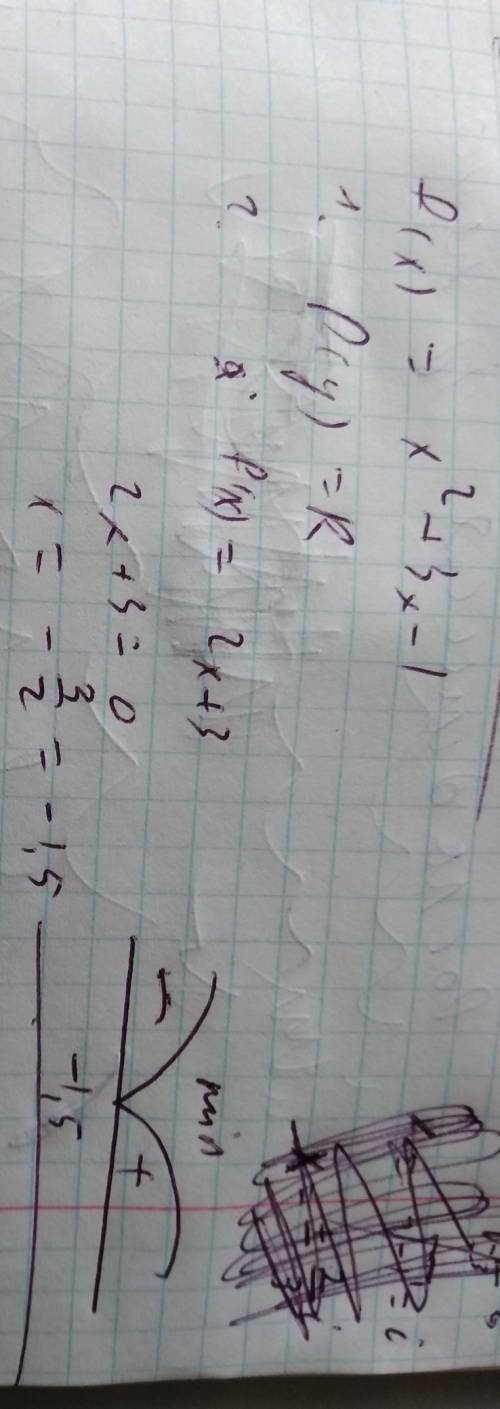 f(x) = x² + 3x - 1
1. D(y) = R
2. f'(x) = 2x+3
2x+3=0
x = - 3/2 = -1,5
min
- +
-1,5